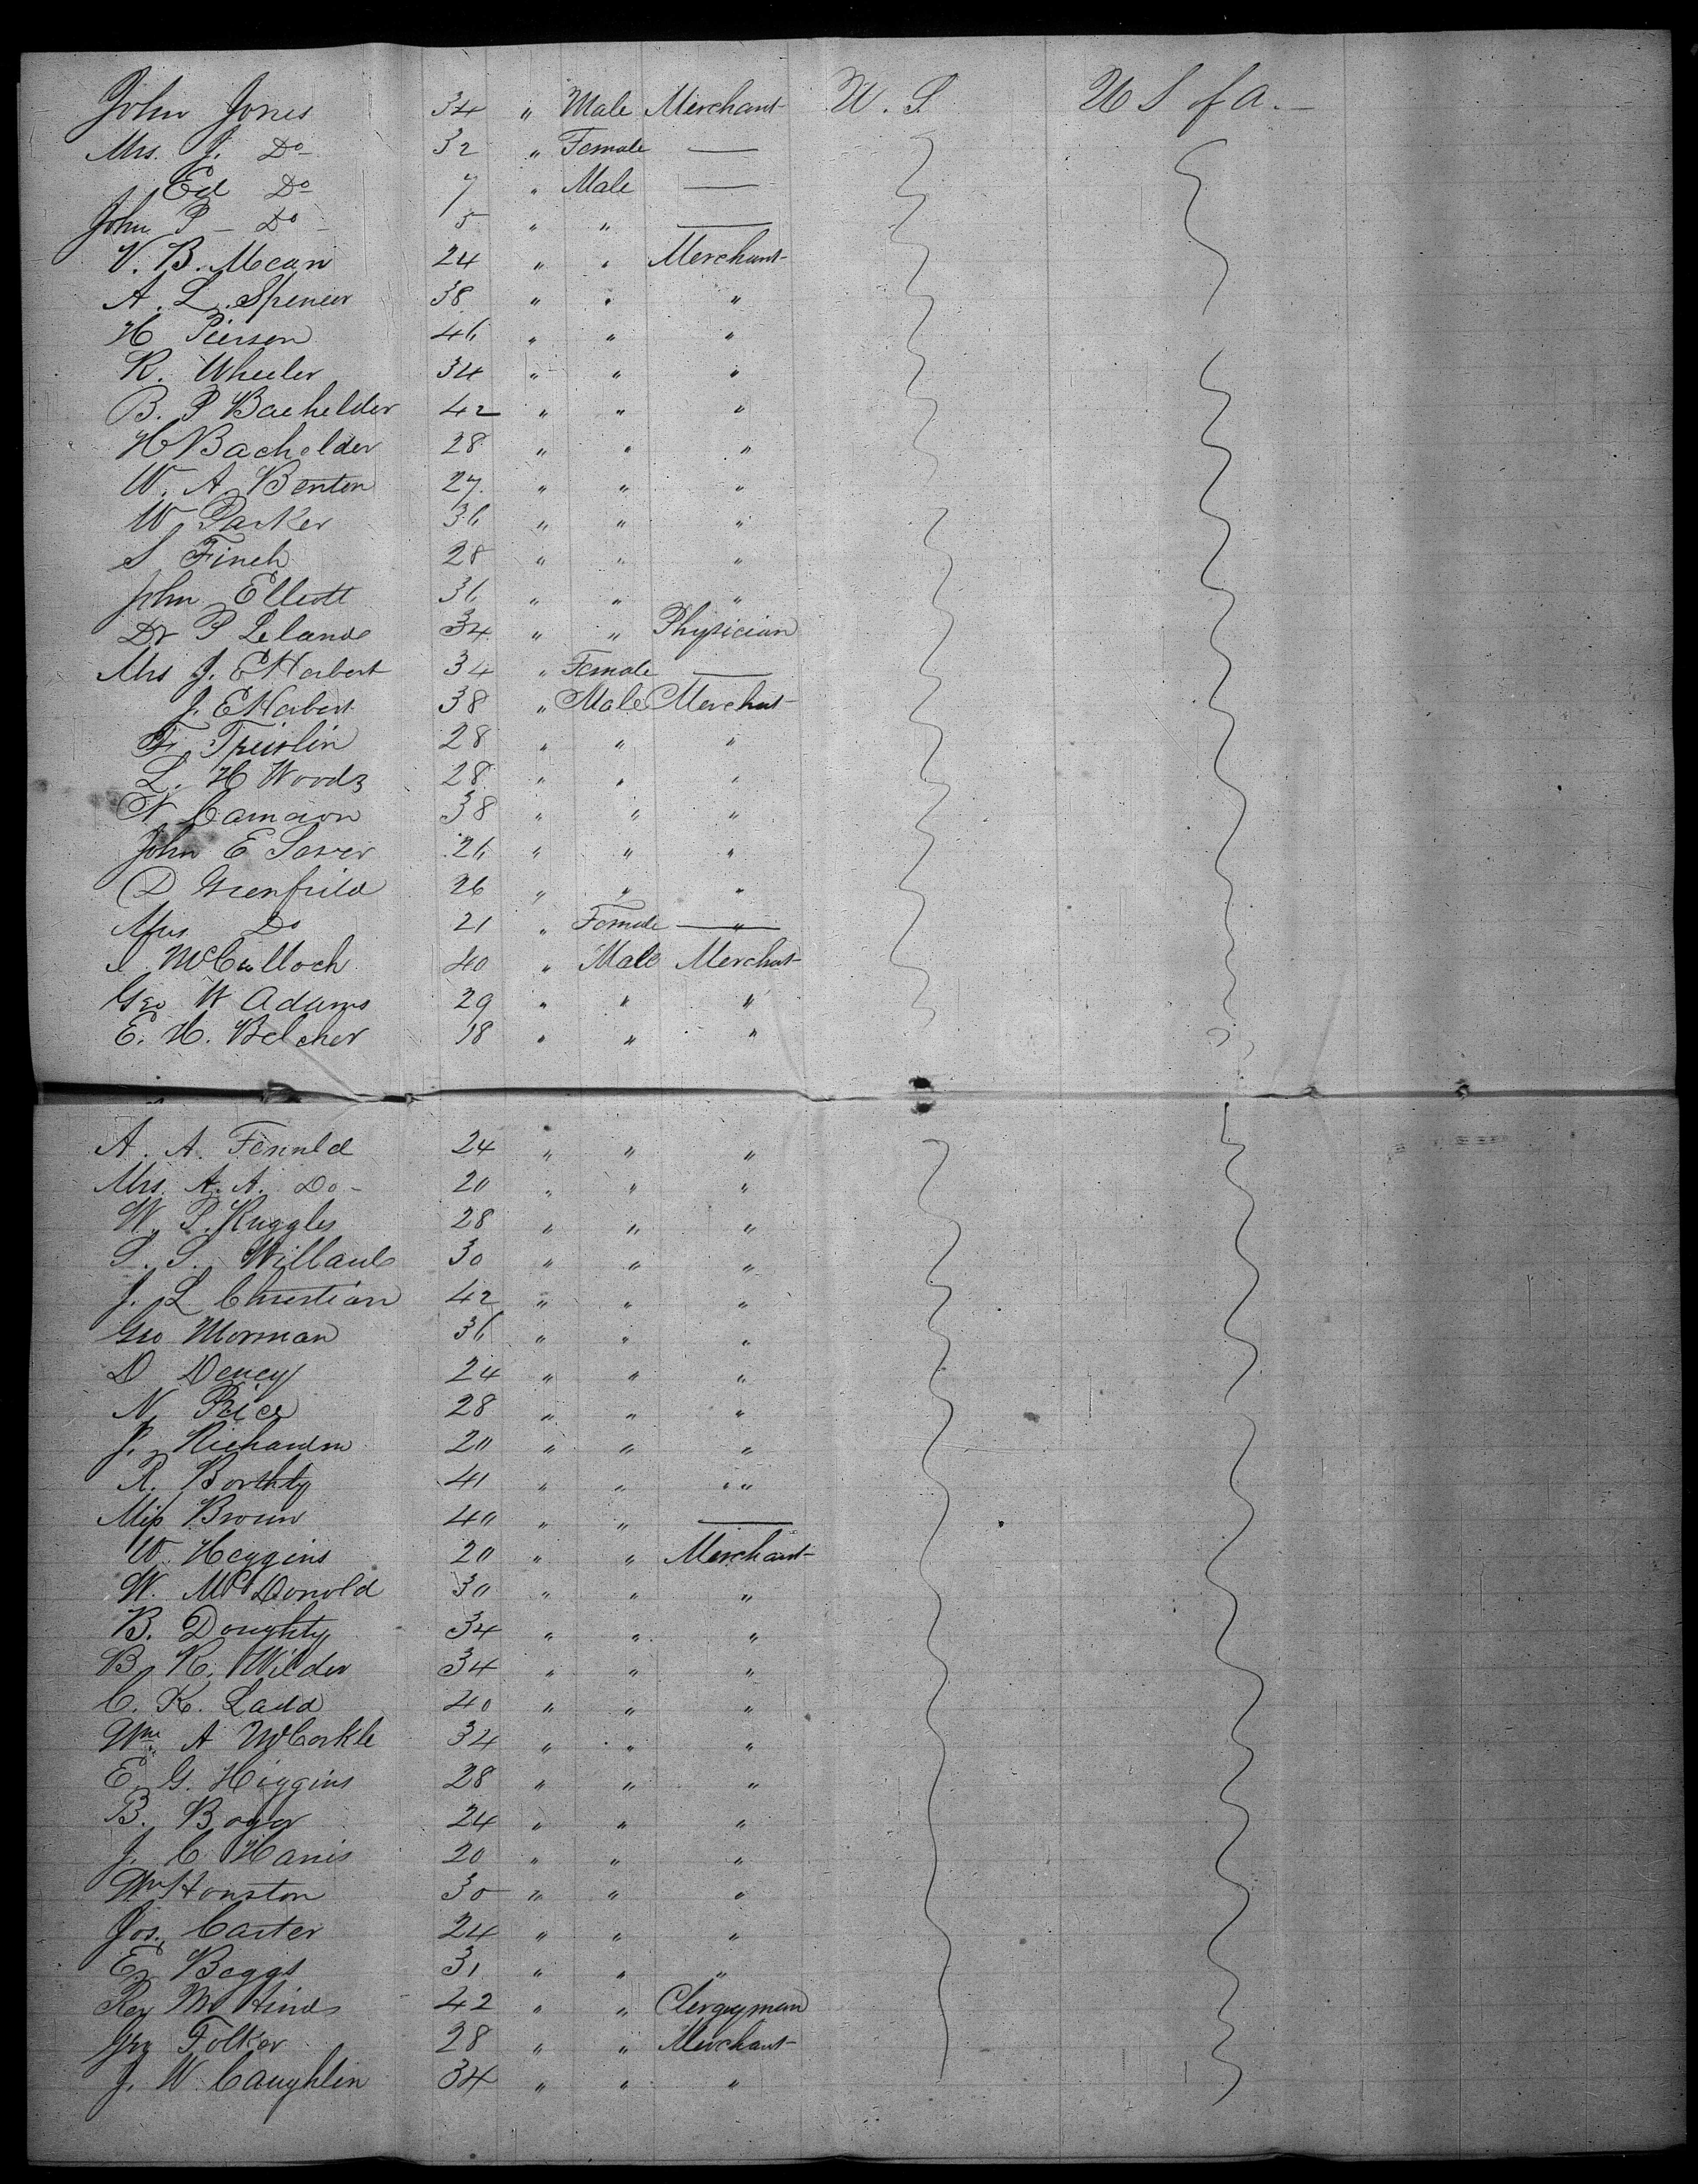 John Jones 34 " Male Merchant U. S. U S of a.
Mrs. J. Do 32 " Female —
Ed Do 7 " Male —
John P - Do - 5 " " —
V. B. Mean 24 " " Merchant
A. L. Spencer 38 " " "
H Pierson 46 " " "
R. Wheeler 34 " " "
B. P Bachelder 42 " " "
H Bachelder 28 " " "
W. A. Benton 27 " " "
W Parker 36 " " "
S Finch 28 " " "
John Elliott 36 " " "
Dr P Leland 34 " " Physician
Mrs J. E Herbert 34 " Female —
J. E Herbert 38 " Male Merchant
F. 28 " " "
L. H Woods 28 " " "
N Cameron 38 " " "
John E 26 " " "
D Greenfield 26 " " "
Mrs Do 21 " Female — "
McCulloch 40 " Male Merchant
Geo W Adams 29 " " "
E. H. Belcher 18 " " "
A. A. Fernald 24 " " "
Mrs. A. A. Do - 20 " " "
W. P. Ruggles 28 " " "
S. S. Willard 30 " " "
J. L Christian 42 " " "
Geo Morman 36 " " "
D 24 " " "
N. Price 28 " " "
J. Richardson 20 " " "
R. 41 " " "
Miss Brown 40 " " —
W. Heggins 20 " " Merchant
W. McDonold 30 " " "
B. Doughty 34 " " "
B. R. Wilder 34 " " "
C. K. Ladd 40 " " "
Wm. A McCorkle 34 " " "
E. G. Higgins 28 " " "
B. 24 " " "
J. C Harris 20 " " "
Wm Houston 30 " " "
Jos. Carter 24 " " "
E. Beggs 31 " " "
Rev Hinds 42 " " Clergyman
Geo Folker 28 " " Merchant
J. W. Caughlin 34 " " "